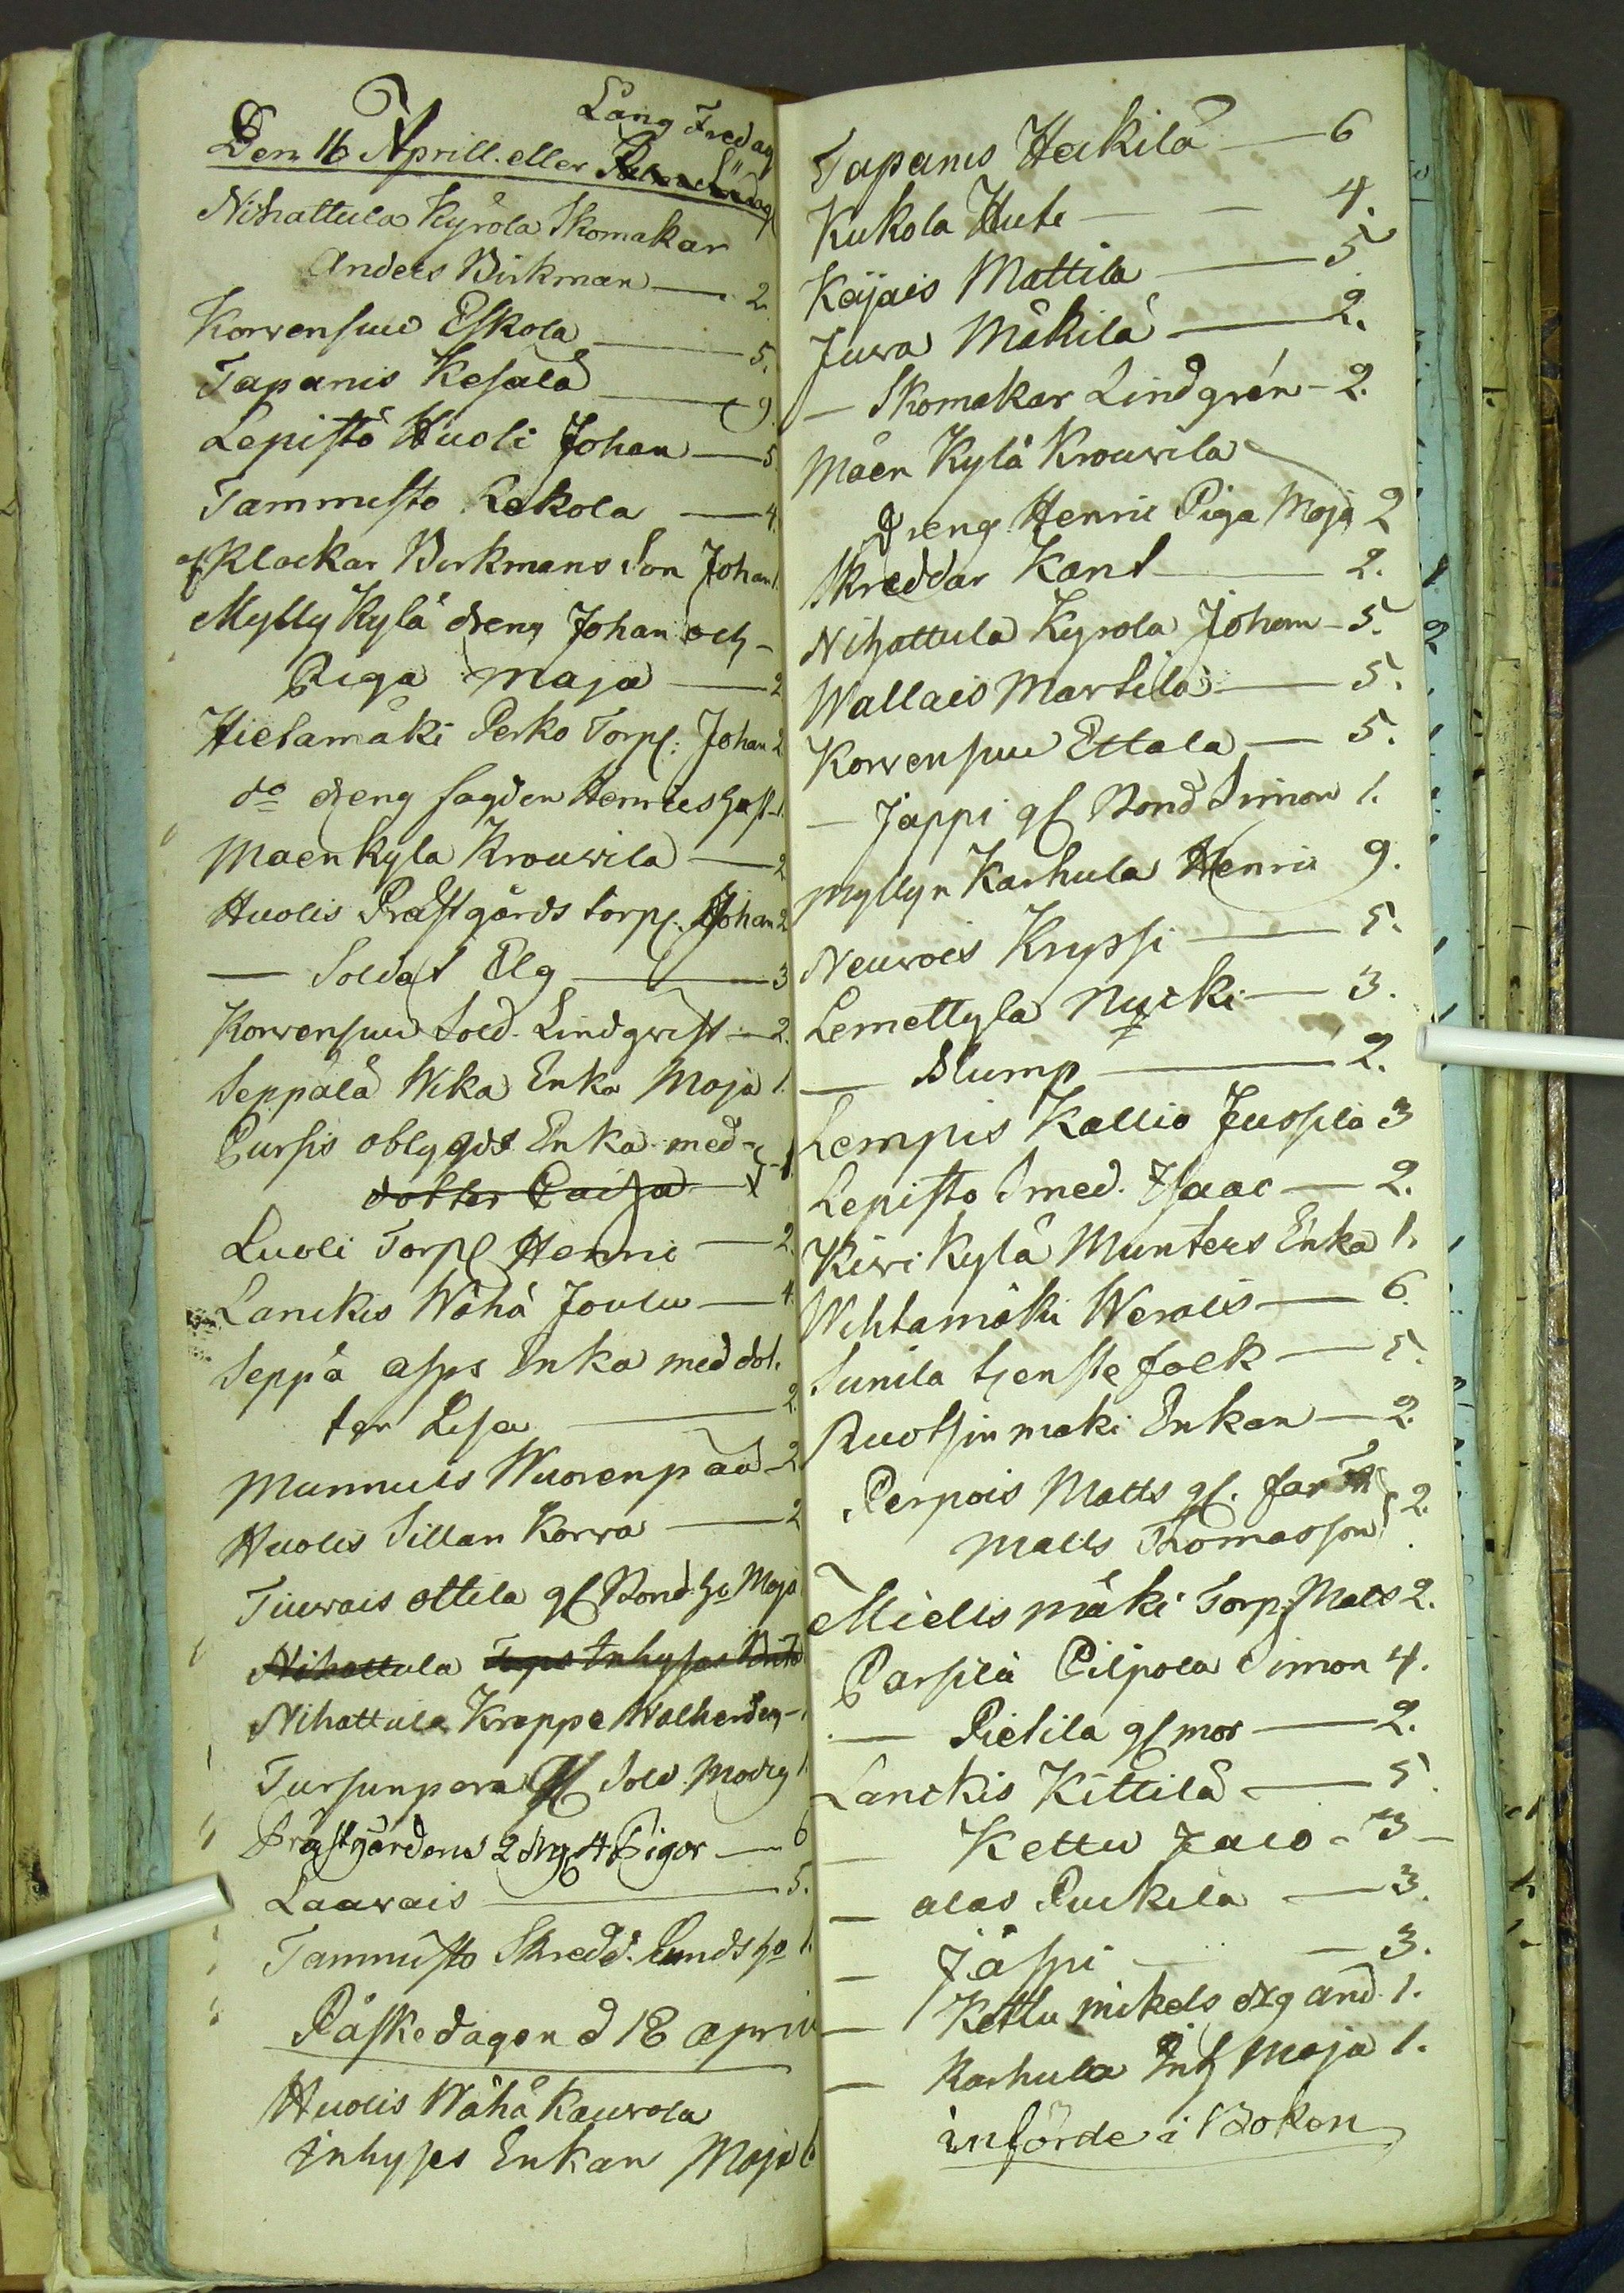 Lång Fredag
Den 16 Aprill. eller Palm Söndag
Nihattula Kyröla Skomakar
Anders Birkman — 2
Korvensuu Eskola — 5.
Tapanis Kesälä — 9.
Lepistö Huoli Johan — 5.
Tammisto Kekola — 4.
gl Klockar Birkmans Son Johan 1.
Mylly Kylä dreng Johan och
Piga Maja — 2
Hietamäki Perko Torp: Johan 2
do dreng sagden Henrics hust. 1.
Maenkyla Krouvila — 2
Huolis Prästgårds torp. Johan 2
— Soldat Elg — 3
Korvensuu Sold. Lindqvist — 2.
Seppälä Wika Enka Maja 1.
Pursis oblygds Enka med — 1
dotter Caisa
Luoli Torp Henric — 2.
Lanckis Wähä Joulu — 4.
Seppä asps Enka med dot-
ter Lisa — 2.
Munnuis Wuorenpää — 2
Huolis Sillan Korva — 2
Tiuvais Ottila gl Bond ho Maja
Nihattula Inhyses
Nihattula Kreppe Walherden — 1
Tursunpera gl Sold. Modig 1.
Prästgårdens 2 drg 4 Pigor — 6
Laavais — 5.
Tammisto Skredd. Lunds ho 1.
Påskedagen d 18 april
Huolis Wähä Kauvola
Inhyses Enkan Maja 1.
Tapanis Heikilä — 6
Kukola Hute — 4.
Kaijais Mattila — 5
Juva Mäkilä — 2.
— Skomakar Lindgrén — 2.
Mäen Kylä Krouvila
Dreng Henric Piga Maja 2
Skreddar Kant — 2.
Nihattula Kyrola Johan — 5.
Wallais Martila — 5.
Korvensuu Ettala — 5.
— Jäppi gl Bond Simon 1.
Myllyn Karhula Henric 9.
Neuvois Kryssi — 5.
Lemettyla Nucki — 3.
— Slump — 2.
Lempis Kallio Jussila 3
Lepisto Smed. Isaac — 2.
Kivi Kylä Munters Enka 1.
Wihtamäki Werais — 6.
Sunila tjenstefolk — 5.
Ruotsinmäki Enkan — 2.
Perpois Matts gl. far
Matts Thomasson 2.
Mielismäki Torp. Mats 2.
Parsila Pilpola Simon 4.
— Pietila gl mor — 2.
Lanckis Kittilä — 5.
— Kettu Jaco — 3 —
— alas Puckila — 3.
— Jäspi — 3.
— Kettu mikels drg And. 1.
— Karhula Inh Maja 1.
införde i Boken